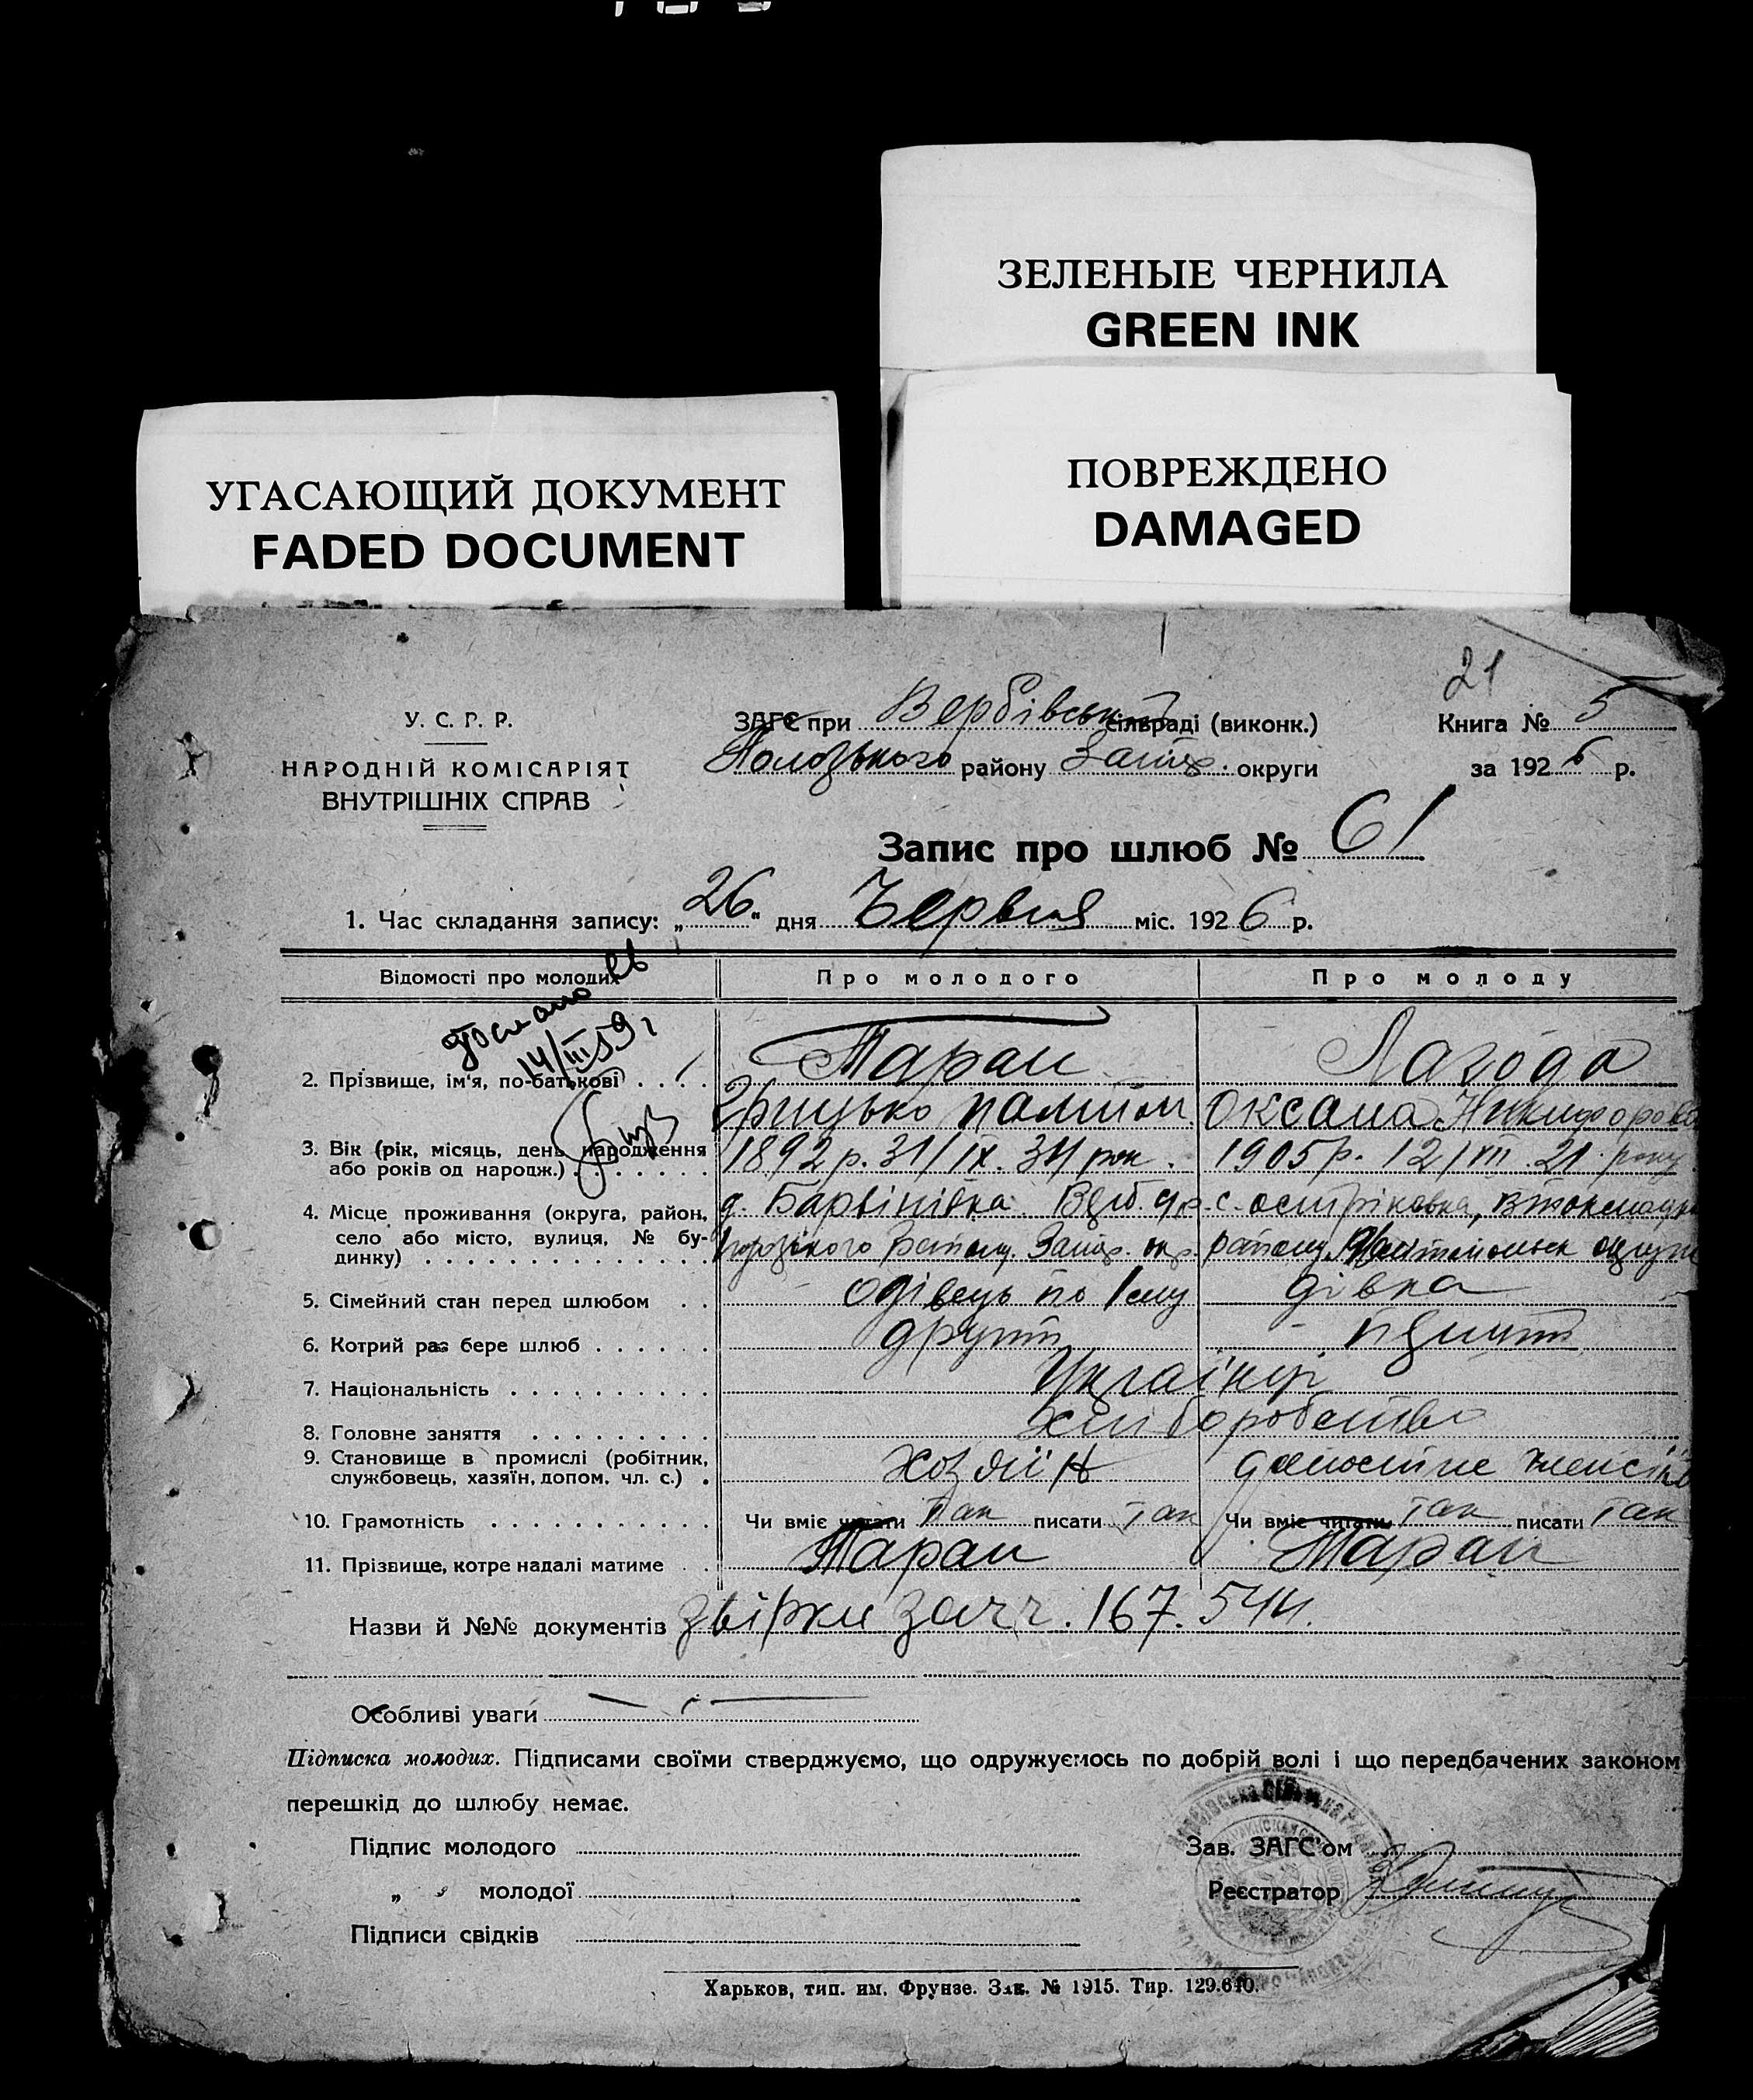 ЗЕЛЕНЫЕ ЧЕРНИЛА
GREEN INK
УГАСАЮЩИЙ ДОКУМЕНТ
FADED DOCUMENT
ПОВРЕЖДЕНО
DAMAGED
21
У. С. Р. Р.
НАРОДНІЙ КОМІСАРІЯТ
ВНУТРІШНІХ СПРАВ
ЗАГС при Вербівській сільраді (виконк.)
Пологського району Запор. округи
Книга № 5
за 1926 р.
Запис про шлюб № 61
1. Час складання запису: „26" дня Червня міс. 1926 р.
Відомості про молодих
Про молодого
Про молоду
14/III 59 г
2. Прізвище, ім'я, по-батькові
Таран
Грицько
Лагода
Оксана Никифорова
3. Вік (рік, місяць, день народження
або років од народж.)
1892 р. 31/IX. 34 рок.
1905 р. 12/VII. 21. року
4. Місце проживання (округа, район,
село або місто, вулиця, № бу-
динку)
д. Барвінівка. Верб.
Запор. окр.
с. остріковка,
району
5. Сімейний стан перед шлюбом
одівець по 1му
дівка
6. Котрий раз бере шлюб
другий
перший
7. Національність
Українці
8. Головне заняття
хліборобство
9. Становище в промислі (робітник,
службовець, хазяїн, допом. чл. с.)
хозяїн
10. Грамотність
Чи вміє читати так писати так
Чи вміє читати так писати так
11. Прізвище, котре надалі матиме
Таран
Таран
Назви й №№ документів звірки 167. 544.
Особливі уваги
Підписка молодих. Підписами своїми стверджуємо, що одружуємось по добрій волі і що передбачених законом
перешкід до шлюбу немає.
Підпис молодого
„ молодої
Підписи свідків
Зав. ЗАГС'ом
Реєстратор
Харьков, тип. им. Фрунзе. Зак. № 1915. Тир. 129.640.